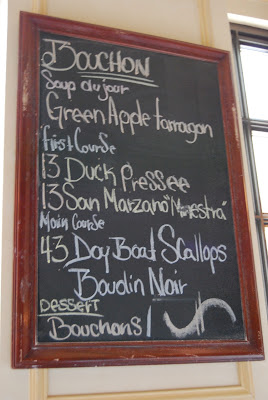 BOUCHON
Soup du jour
Green Apple tarragon
first Course
13 DUCK PRESSEE
13 SAN MARZANO "MINESTRA"
Main Course
43 Day Boat Scallops
Boudin Noir
DESSERT
Bouchons